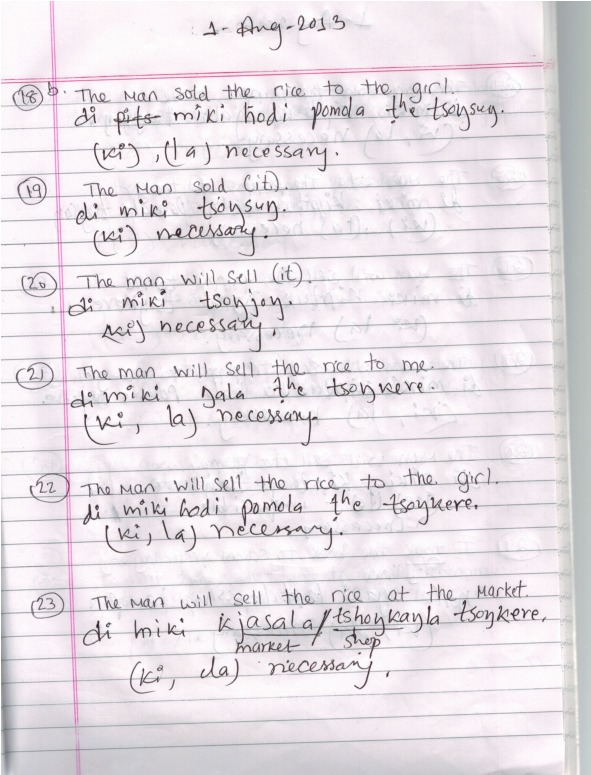 1-Aug-2013
(18) b. The Man sold the rice to the girl.
di miki hodi pomola the tsoŋsuŋ.
(ki), (la) necessary.
(19) The Man sold (it).
di miki tsoŋsuŋ.
(ki) necessary.
(20) The man will sell (it).
di miki tsoŋjoŋ.
(ki) necessary.
(21) The man will sell the rice to me.
di miki ŋala the tsoŋkere.
(ki, la) necessary.
(22) The Man will sell the rice to the girl.
di miki hodi pomola the tsoŋkere.
(ki, la) necessary.
(23) The Man will sell the rice at the Market.
di miki kjasala/tshoŋkaŋla tsoŋkere.
market shop
(ki, la) necessary.